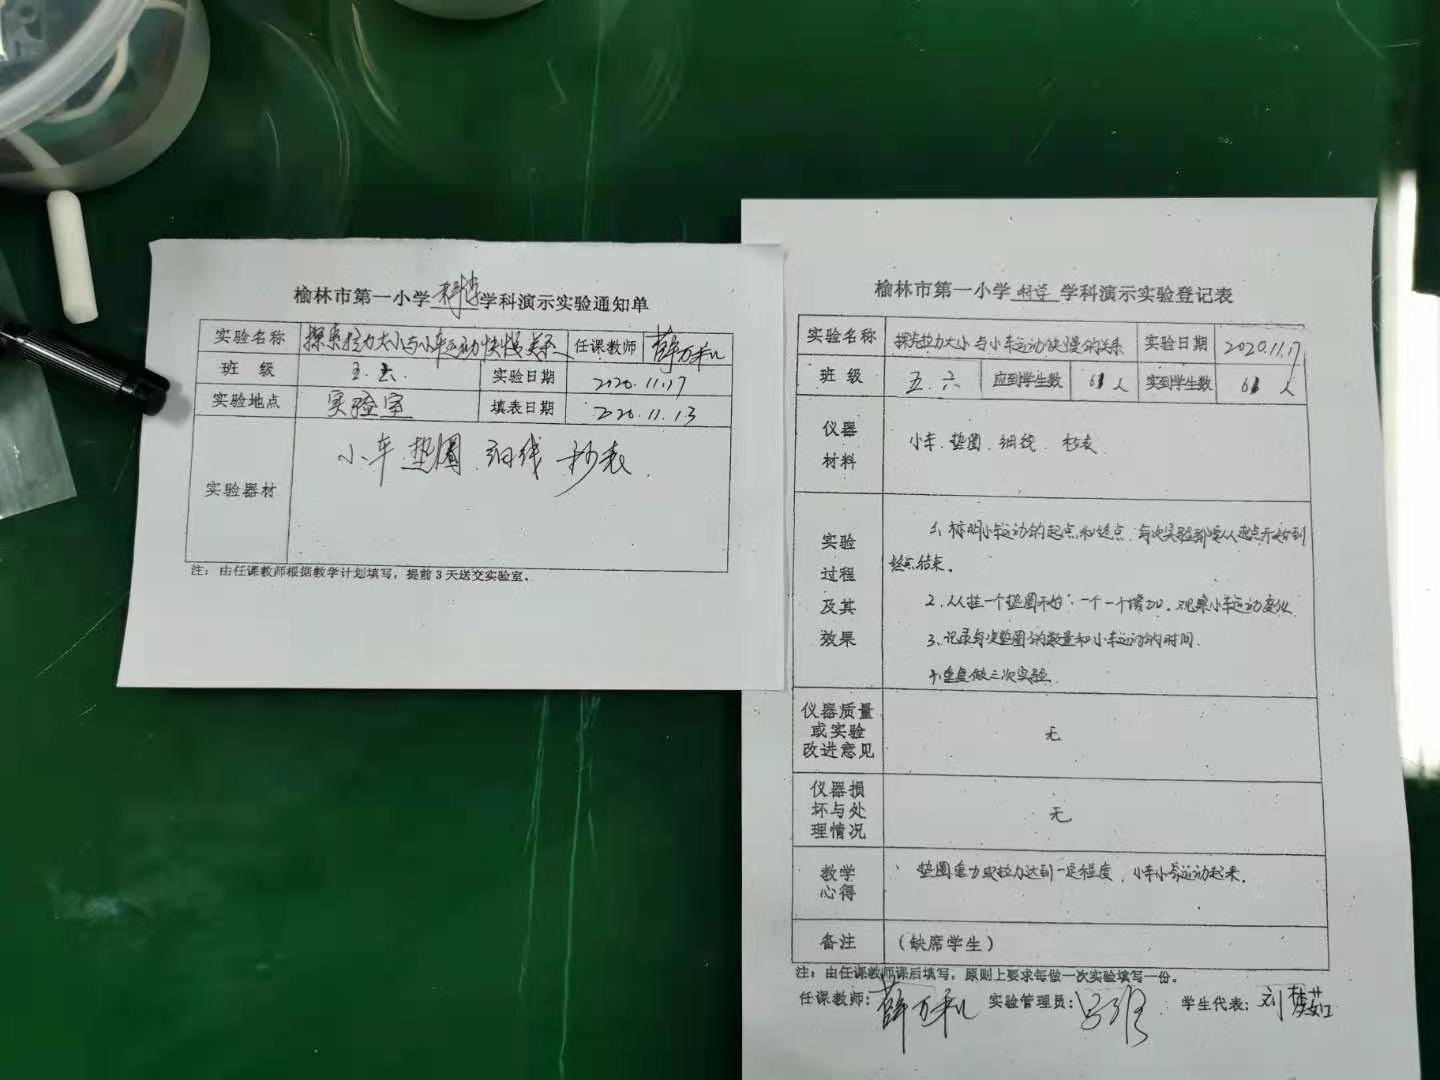 榆林市第一小学科学学科演示实验通知单
实验名称 探索拉力大小与小车运动快慢关系 任课教师 薛万利
班级 五.六. 实验日期 2020.11.17
实验地点 实验室 填表日期 2020.11.13
实验器材 小车 垫圈 细线 秒表
注：由任课教师根据教学计划填写，提前3天送交实验室。
榆林市第一小学科学学科演示实验登记表
实验名称 探究拉力大小与小车运动快慢的关系 实验日期 2020.11.17
班级 五.六 应到学生数 61人 实到学生数 61人
仪器材料 小车.垫圈.细线.秒表
实验过程及其效果
1、标明小车运动的起点和终点，每次实验都要从起点开始到
终点结束。
2、从挂一个垫圈开始，一个一个增加，观察小车运动变化
3、记录每次垫圈的数量和小车运动的时间.
4.重复做三次实验
仪器质量或实验改进意见 无
仪器损坏与处理情况 无
教学心得 垫圈重力或拉力达到一定程度，小车才会运动起来.
备注 （缺席学生）
注：由任课教师课后填写，原则上要求每做一次实验填写一份。
任课教师：薛万利 实验管理员： 学生代表：刘梦茹